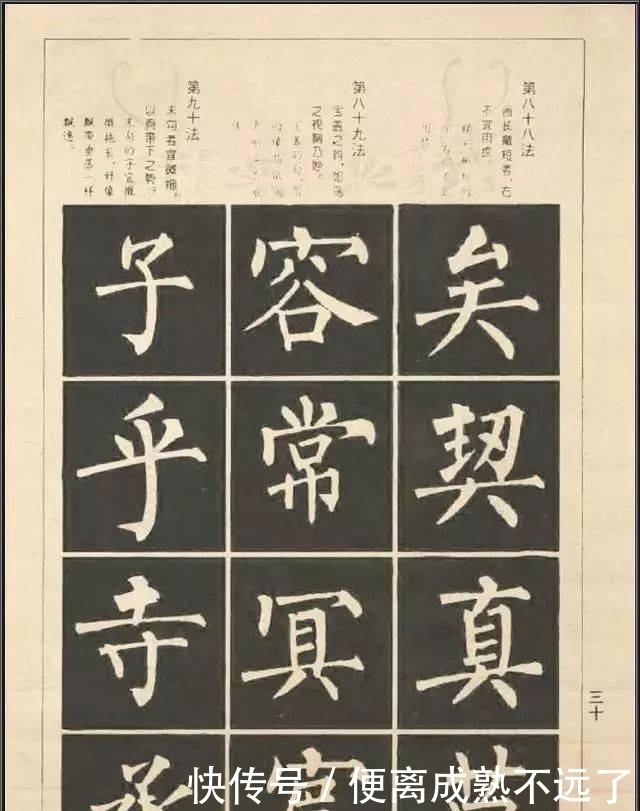 第八十八法
画长撇短者，右
不宜用捺。
矣
契
真
第八十九法
宝盖之钩，如鸟
之视胸乃妙。
容
常
冥
第九十法
末勾者宜微拖，
以有带下之势。
末勾的字宜微
微拖长，好像
飘带垂落一样
飘逸。
子
乎
寺
三十
快传号 / 便离成熟不远了